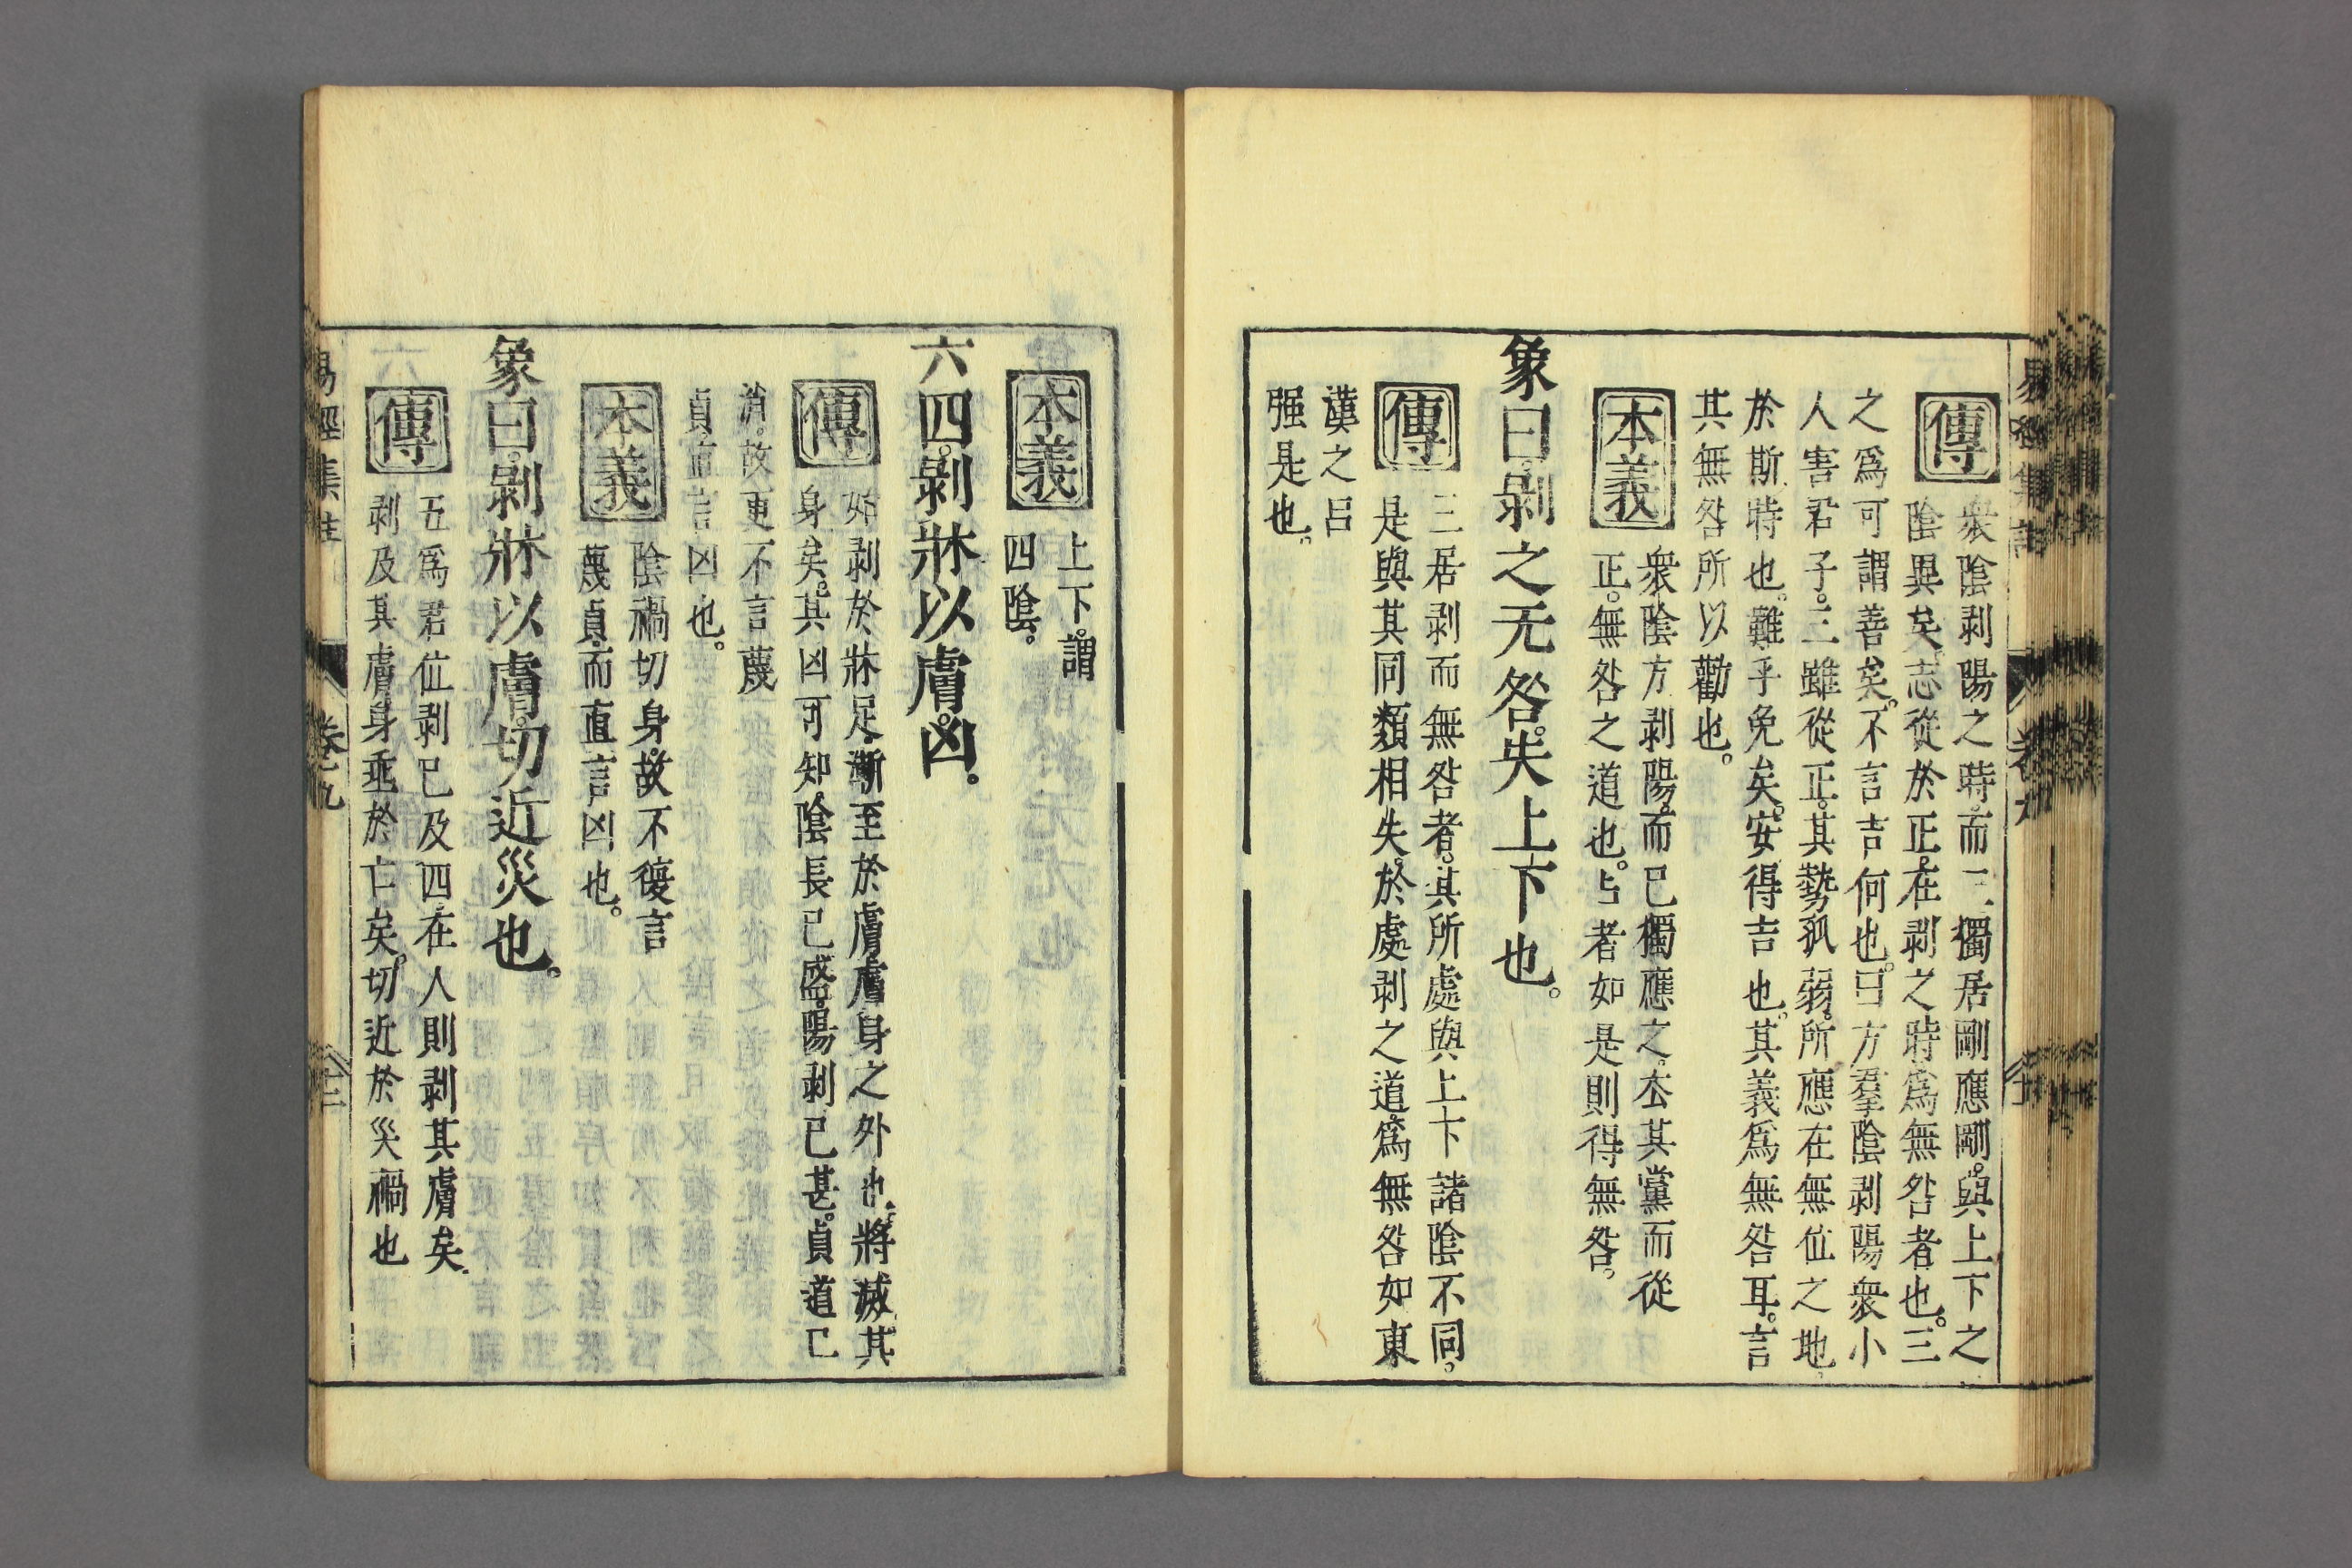 傳
衆陰剥陽之時。而三獨居剛應剛。與上下之
陰異矣。志從於正。在剥之時。爲無咎者也。三
之爲可謂善矣。不言吉何也。曰方羣陰剥陽衆小
人害君子。三雖從正。其勢孤弱。所應在無位之地。
於斯時也。難乎免矣。安得吉也。其義爲無咎耳。言
其無咎所以勸也。
本義
衆陰方剥陽。而已獨應之。去其黨而從
正。無咎之道也。占者如是則得無咎。
象曰。剝之无咎。失上下也。
傳
三居剥而無咎者。其所處與上下諸陰不同。
是與其同類相失。於處剥之道。爲無咎如東
漢之呂
强是也。
本義
上下。謂
四陰。
六四。剝牀以膚。凶。
傳
始剥於牀足。漸至於膚。膚身之外也。將滅其
身矣。其凶可知。陰長已盛。陽剥已甚。貞道已
消。故更不言蔑
貞。直言凶也。
本義
陰禍切身。故不復言
蔑貞。而直言凶也。
象曰。剝牀以膚。切近災也。
傳
五爲君位剥已及四。在人則剥其膚矣。
剥及其膚。身垂於亡矣。切近於災禍也
易經集註
卷九